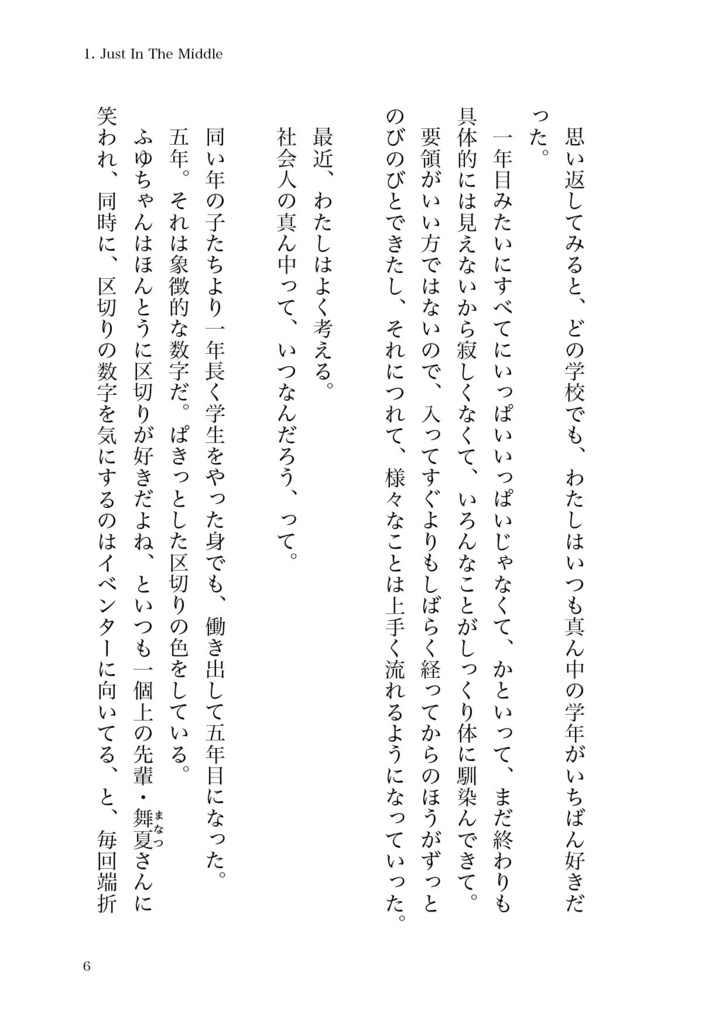 1. Just In The Middle
思い返してみると、どの学校でも、わたしはいつも真ん中の学年がいちばん好きだ
った。
一年目みたいにすべてにいっぱいいっぱいじゃなくて、かといって、まだ終わりも
具体的には見えないから寂しくなくて、いろんなことがしっくり体に馴染んできて。
要領がいい方ではないので、入ってすぐよりもしばらく経ってからのほうがずっと
のびのびとできたし、それにつれて、様々なことは上手く流れるようになっていった。
最近、わたしはよく考える。
社会人の真ん中って、いつなんだろう、って。
同い年の子たちより一年長く学生をやった身でも、働き出して五年目になった。
五年。それは象徴的な数字だ。ぱきっとした区切りの色をしている。
ふゆちゃんはほんとうに区切りが好きだよね、といつも一個上の先輩・舞夏さんに
まなつ
笑われ、同時に、区切りの数字を気にするのはイベンターに向いてる、と、毎回端折
6